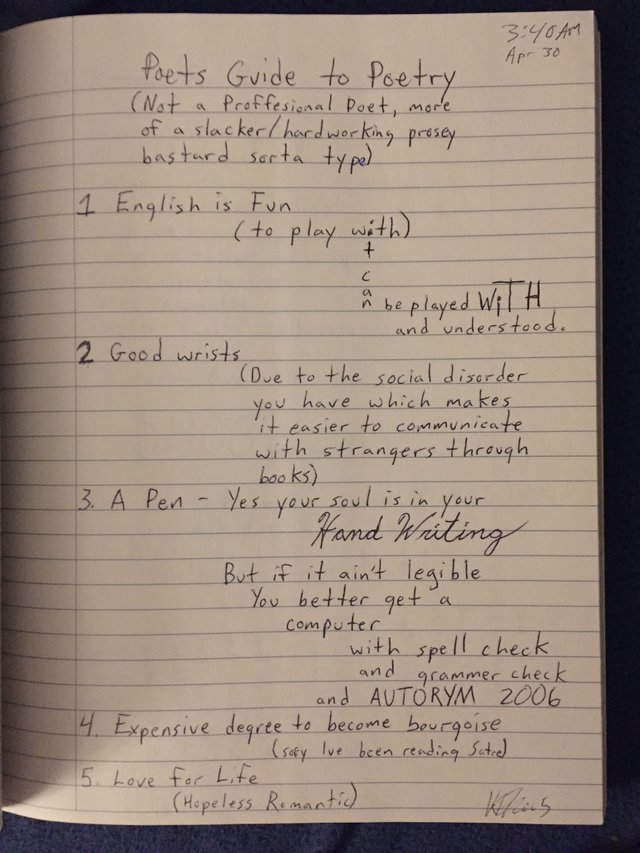 3:40AM
Apr 30
Poets Guide to Poetry
(Not a Proffesional Poet, more
of a slacker/hardworking prosey
bastard sorta type)
1 English is Fun
(to play with)
t
c
a
n be played WiTH
and understood.
2 Good wrists
(Due to the social disorder
you have which makes
it easier to communicate
with strangers through
books)
3. A Pen - Yes your soul is in your
Hand Writing
But if it ain't legible
You better get a
computer
with spell check
and grammer check
and AUTORYM 2006
4. Expensive degree to become bourgoise
(sory Ive been reading Satre)
5. Love for Life
(Hopeless Romantic)